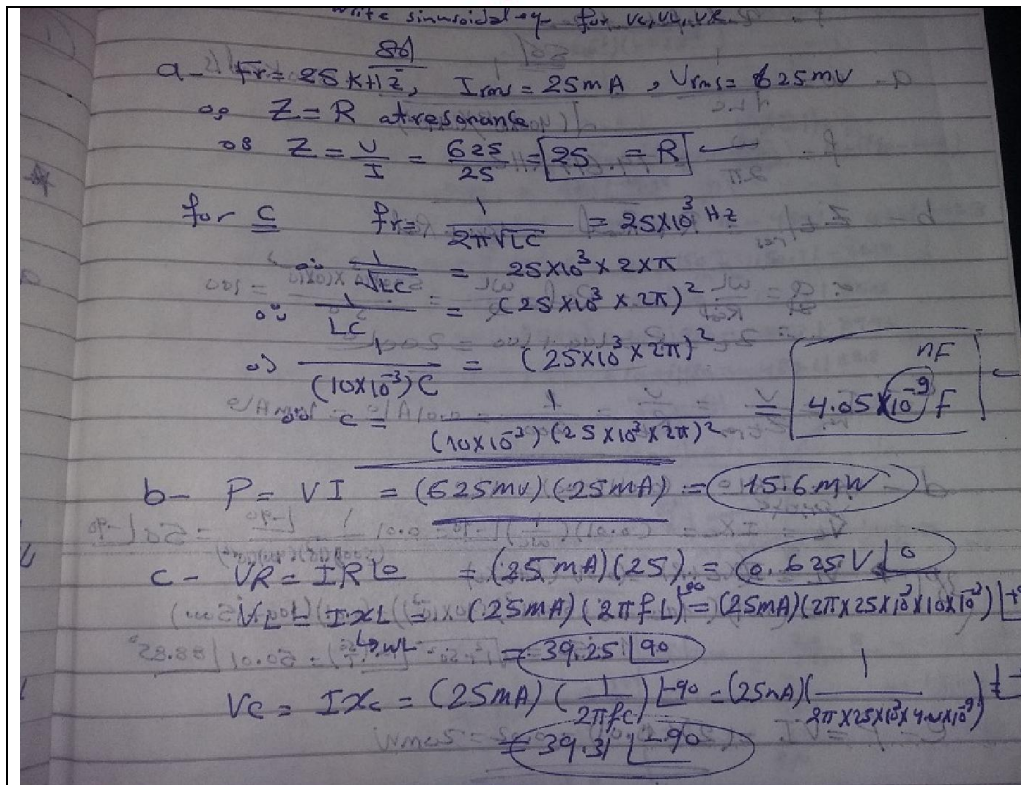 write sinusoidal eq for Vc, VL, VR
sol
a- Fr = 25 KHz, Irms = 25mA, Vrms = 625mV
∴ Z = R at resonance
∴ Z = V/I = 625/25 = 25 = R
for C fr = 1/(2π√LC) = 25×10³ Hz
∴ 1/√LC = 25×10³ × 2×π
∴ 1/LC = (25×10³ × 2π)²
∴ 1/((10×10⁻³)C) = (25×10³ × 2π)²
nF
∴ C = 1/((10×10⁻³)(25×10³×2π)²) = 4.05×10⁻⁹ F
b- P = VI = (625mV)(25mA) = 15.6mW
c- VR = IR∠0 = (25mA)(25) = 0.625V∠0
VL = IXL = (25mA)(2πfL)∠90 = (25mA)(2π×25×10³×10×10⁻³)
↳ωL = 39.25∠90
Vc = IXc = (25mA)(1/(2πfC))∠-90 = (25mA)(1/(2π×25×10³×4.05×10⁻⁹))
= 39.31∠-90